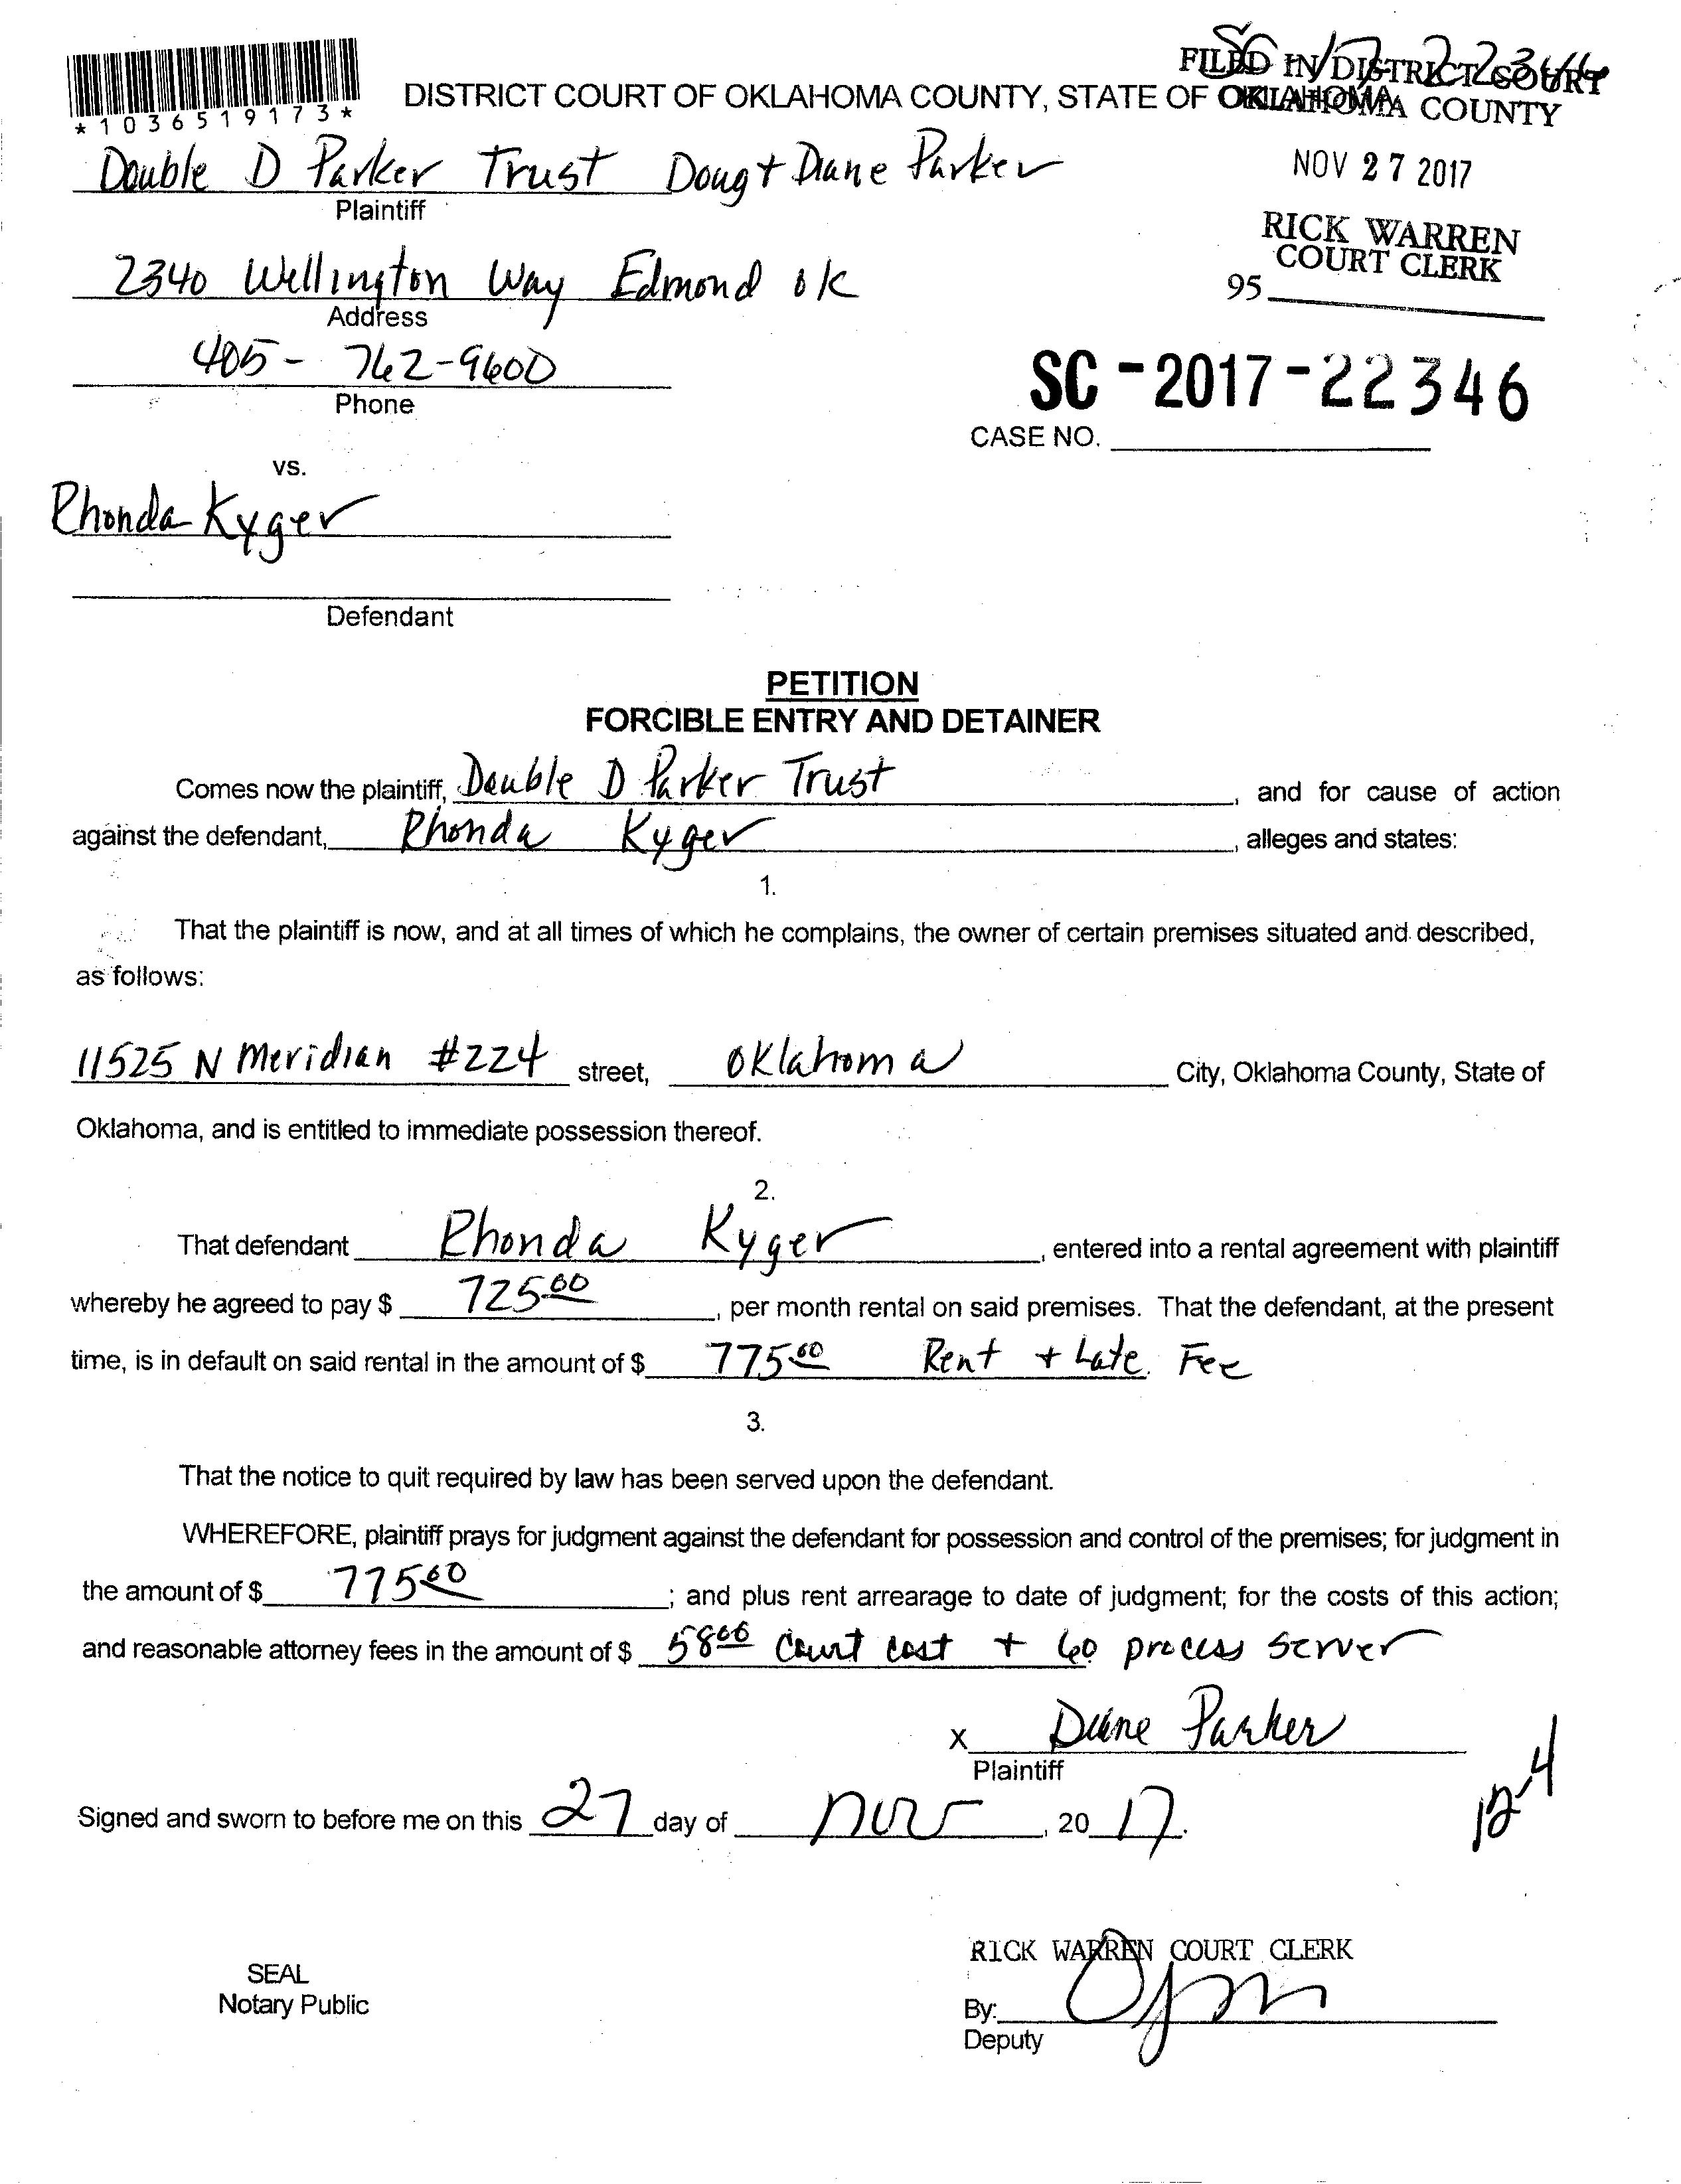 SC 17 22346
FILED IN DISTRICT COURT
DISTRICT COURT OF OKLAHOMA COUNTY, STATE OF OKLAHOMA
OKLAHOMA COUNTY
*1036519173*
Double D Parker Trust Doug + Diane Parker
NOV 27 2017
Plaintiff
RICK WARREN
COURT CLERK
2340 Wellington Way Edmond OK
95
Address
405-762-9600
Phone
SC-2017-22346
CASE NO.
vs.
Rhonda Kyger
Defendant
PETITION
FORCIBLE ENTRY AND DETAINER
Comes now the plaintiff, Double D Parker Trust, and for cause of action
against the defendant, Rhonda Kyger, alleges and states:
1.
That the plaintiff is now, and at all times of which he complains, the owner of certain premises situated and described,
as follows:
11525 N Meridian #224 street, Oklahoma City, Oklahoma County, State of
Oklahoma, and is entitled to immediate possession thereof.
2.
That defendant Rhonda Kyger, entered into a rental agreement with plaintiff
whereby he agreed to pay $ 725.00, per month rental on said premises. That the defendant, at the present
time, is in default on said rental in the amount of $ 775.00 Rent + Late Fee
3.
That the notice to quit required by law has been served upon the defendant.
WHEREFORE, plaintiff prays for judgment against the defendant for possession and control of the premises; for judgment in
the amount of $ 775.00; and plus rent arrearage to date of judgment; for the costs of this action;
and reasonable attorney fees in the amount of $ 58.00 Court cost + 60 process server
x Diane Parker
Plaintiff
12-4
Signed and sworn to before me on this 27 day of Nov, 2017.
RICK WARREN COURT CLERK
SEAL
Notary Public
By:
Deputy